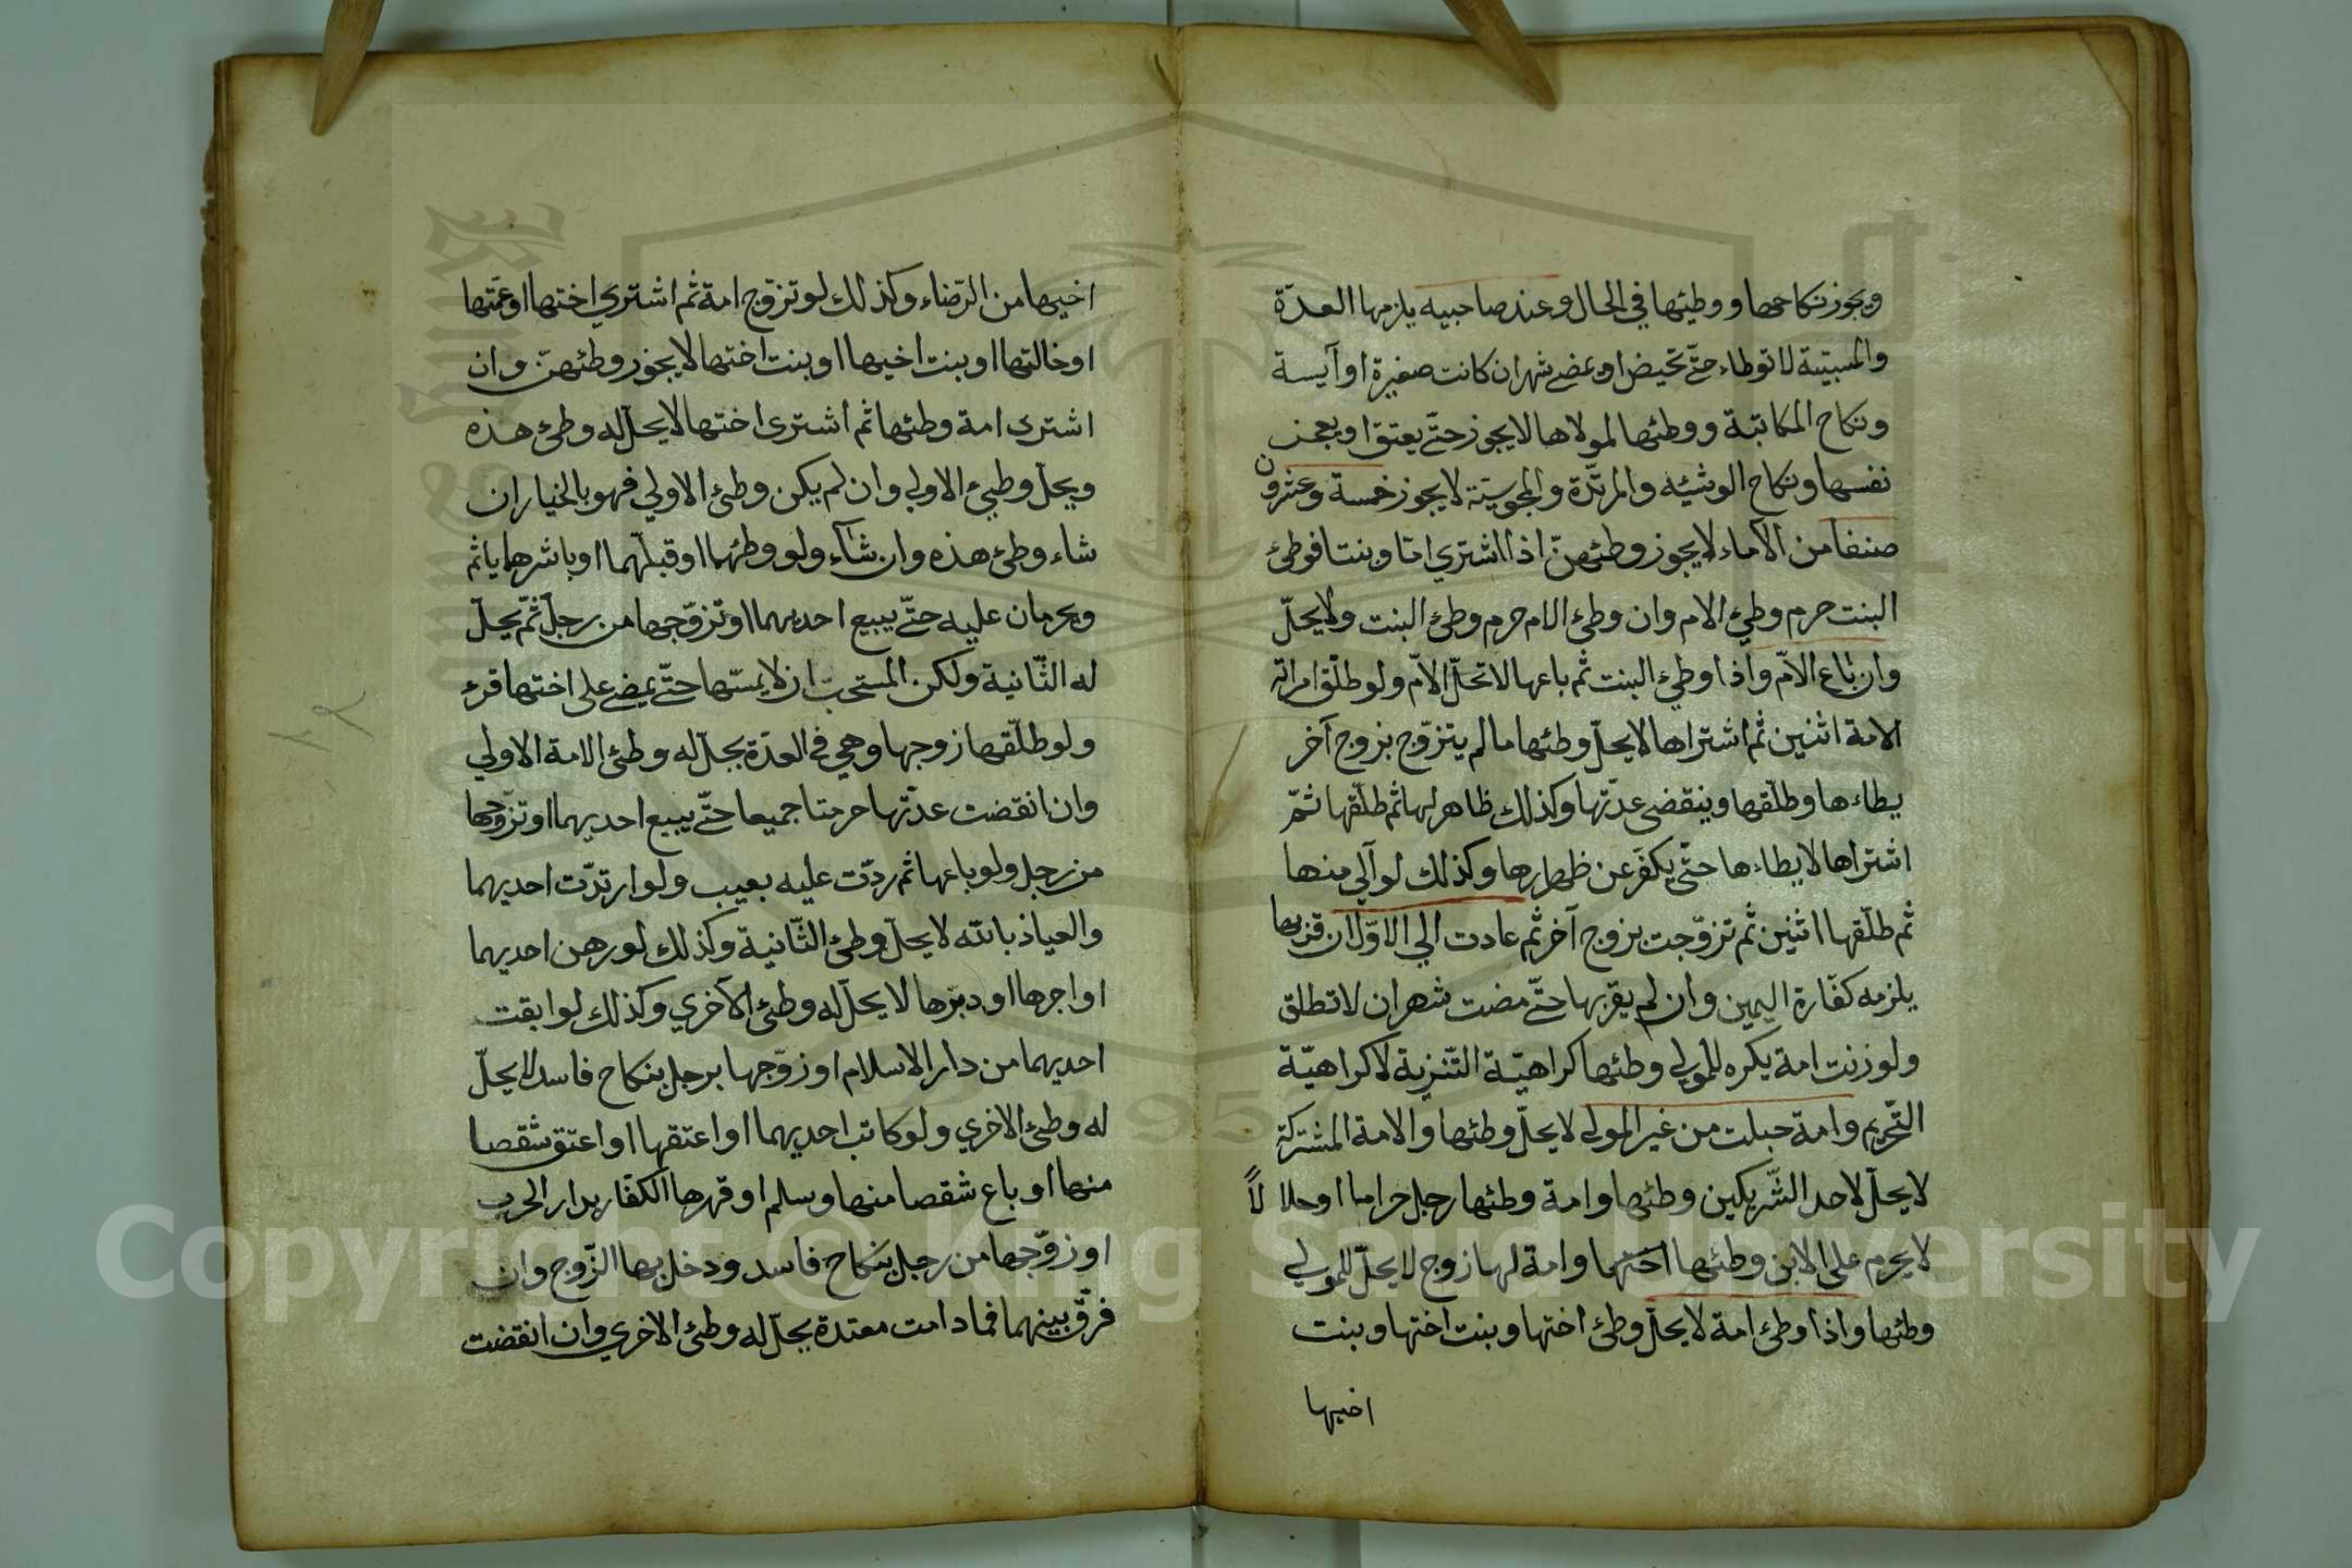 ويجوز نكاحها ووطيئها في الحال وعند صاحبيه يلزمها العدّة
والمسبيّة لا توطاء حتّي تحيض او يمضي شهر ان كانت صغيرة او آيسة
ونكاح المكاتبة ووطئها لمولاها لا يجوز حتّي يعتق او يعجز
نفسها ونكاح الوشيّه والمرتدّة والمجوسيّة لا يجوز خمسة وعشرون
صنفا من الاماء لا يجوز وطئهنّ اذا اشتري امّا وبنتا فوطئ
البنت حرم وطيء الام وان وطئ الام حرم وطئ البنت ولا يحلّ
وان باع الامّ واذا وطئ البنت ثم باعها لا تحلّ الامّ ولو طلّق امراته
الامة اثنين ثم اشتراها لا يحلّ وطئها ما لم يتزوّج بزوج آخر
يطاءها وطلّقها وينقضى عدّتها وكذلك ظاهر لها ثم طلّقها ثمّ
اشتراها لا يطاءها حتّى يكفّر عن ظهارها وكذلك لو آلي منها
ثم طلّقها اثنين ثم تزوّجت بزوج آخر ثم عادت الي الاوّل ان قربها
يلزمه كفّارة اليمين وان لم يقربها حتّي مضت شهران لا تطلق
ولو زنت امة يكره للمولي وطئها كراهيّة التّنزية لا كراهيّة
التّحريم وامة حبلت من غير المولي لا يحلّ وطئها والامة المشتركة
لا يحلّ لاحد الشّريكين وطئها وامة وطئها رجل حراما او حلالاً
لا يحرم على الابن وطئها اختها وامة لها زوج لا يحلّ للمولي
وطئها واذا وطئ امة لا يحلّ وطئ اختها وبنت اختها وبنت
اخيها
اخيها من الرّضاء وكذلك لو تزوّج امة ثم اشتري اختها او عمّتها
او خالتها او بنت اخيها او بنت اختها لا يجوز وطئهنّ وان
اشتري امة وطئها ثم اشترى اختها لا يحلّ له وطئ هذه
ويحلّ وطيئ الاولي وان لم يكن وطئ الاولي فهو بالخيار ان
شاء وطئ هذه وان شاء ولو وطئهما او قبلّهما او باشرهما ياثم
ويحرمان عليه حتّي يبيع احديهما او تزوّجها من رجل ثمّ يحلّ
له الثّانية ولكن المستحبّ ان لا يمسّها حتّي يمضي على اختها قرء
ولو طلّقها زوجها وهي في العدّة يحلّ له وطئ الامة الاولي
وان انقضت عدّتها حرمتا جميعا حتّي يبيع احديهما او تزوّجها
من رجل ولو باعها ثم ردّت عليه بعيب ولو ارتدّت احديهما
والعياذ بالله لا يحلّ وطئ الثّانية وكذلك لو رهن احديهما
او اجرها او دبّرها لا يحلّ له وطئ الآخري وكذلك لو ابقت
احديهما من دار الاسلام او زوّجها برجل بنكاح فاسد لا يحلّ
له وطئ الاخري ولو كاتب احديهما او اعتقها او اعتق شقصا
منها او باع شقصا منها وسلم او قهرها الكفّار بدار الحرب
او زوّجها من رجل بنكاح فاسد ودخل بها الزّوج وان
فرّق بينهما فما دامت معتدة يحلّ له وطئ الاخري وان انقضت
Copyright © King Saud University
1957